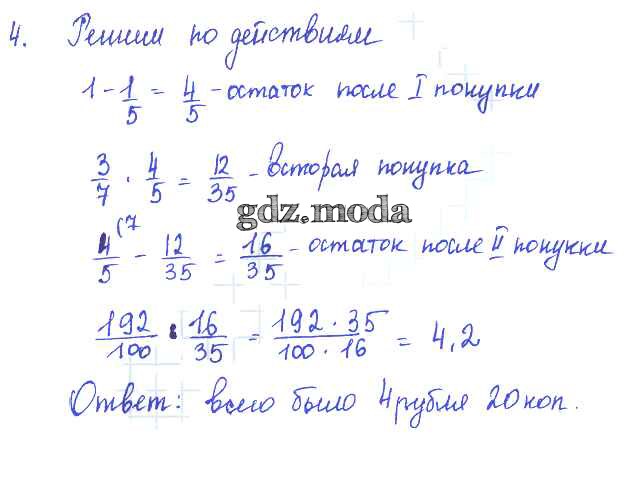 4. Решим по действиям
1 - 1/5 = 4/5 - остаток после I покупки
3/7 · 4/5 = 12/35 - вторая покупка
gdz.moda
4/5 (7 - 12/35 = 16/35 - остаток после II покупки
192/100 : 16/35 = 192 · 35/100 · 16 = 4,2
Ответ: всего было 4 рубля 20 коп.